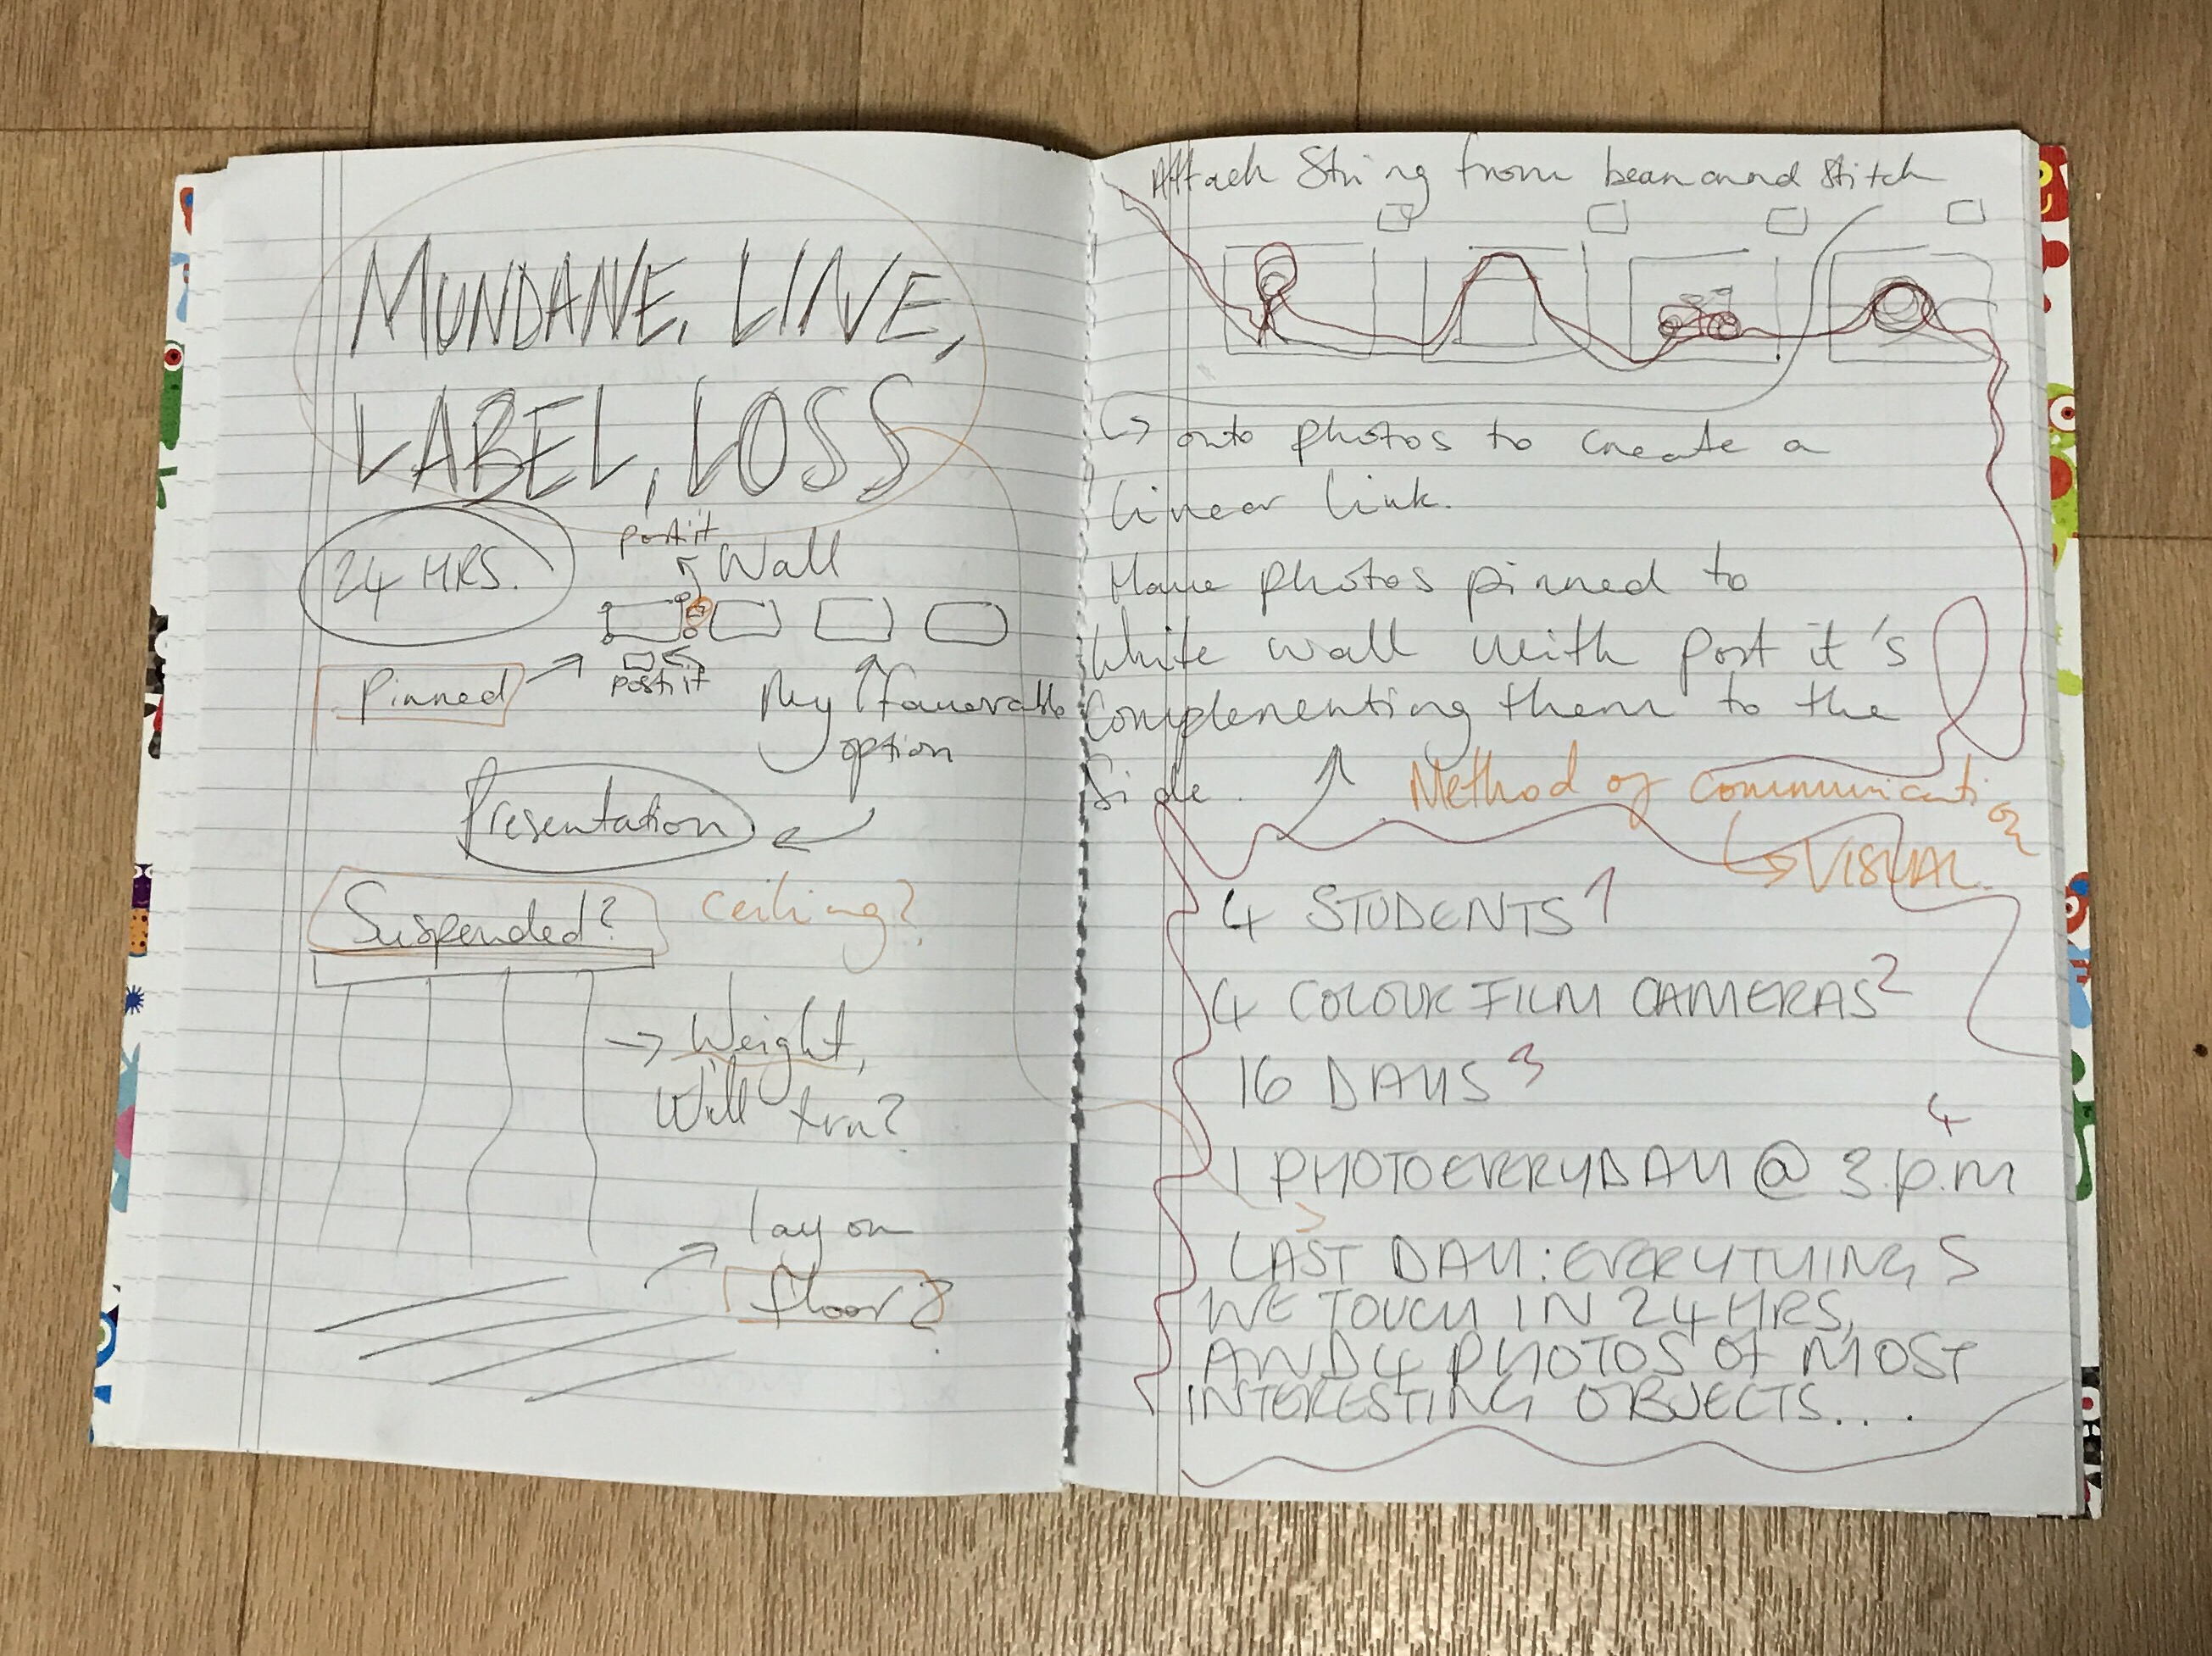 MUNDANE, LINE,
LABEL, LOSS
24 HRS.
post it
Wall
Pinned
post it
My favorable
option
Presentation
Suspended?
ceiling?
→ Weight,
Will turn?
lay on
floor?
Attach String from beam and stitch
↳ onto photos to create a
linear link.
Have photos pinned to
White wall with post it's
Complementing them to the
Side.
Method of communication
↳ VISUAL.
4 STUDENTS 1
4 COLOUR FILM CAMERAS 2
16 DAYS 3
1 PHOTO EVERYDAY @ 3.p.m 4
LAST DAY: EVERYTHING 5
WE TOUCH IN 24 HRS,
AND 4 PHOTOS OF MOST
INTERESTING OBJECTS...